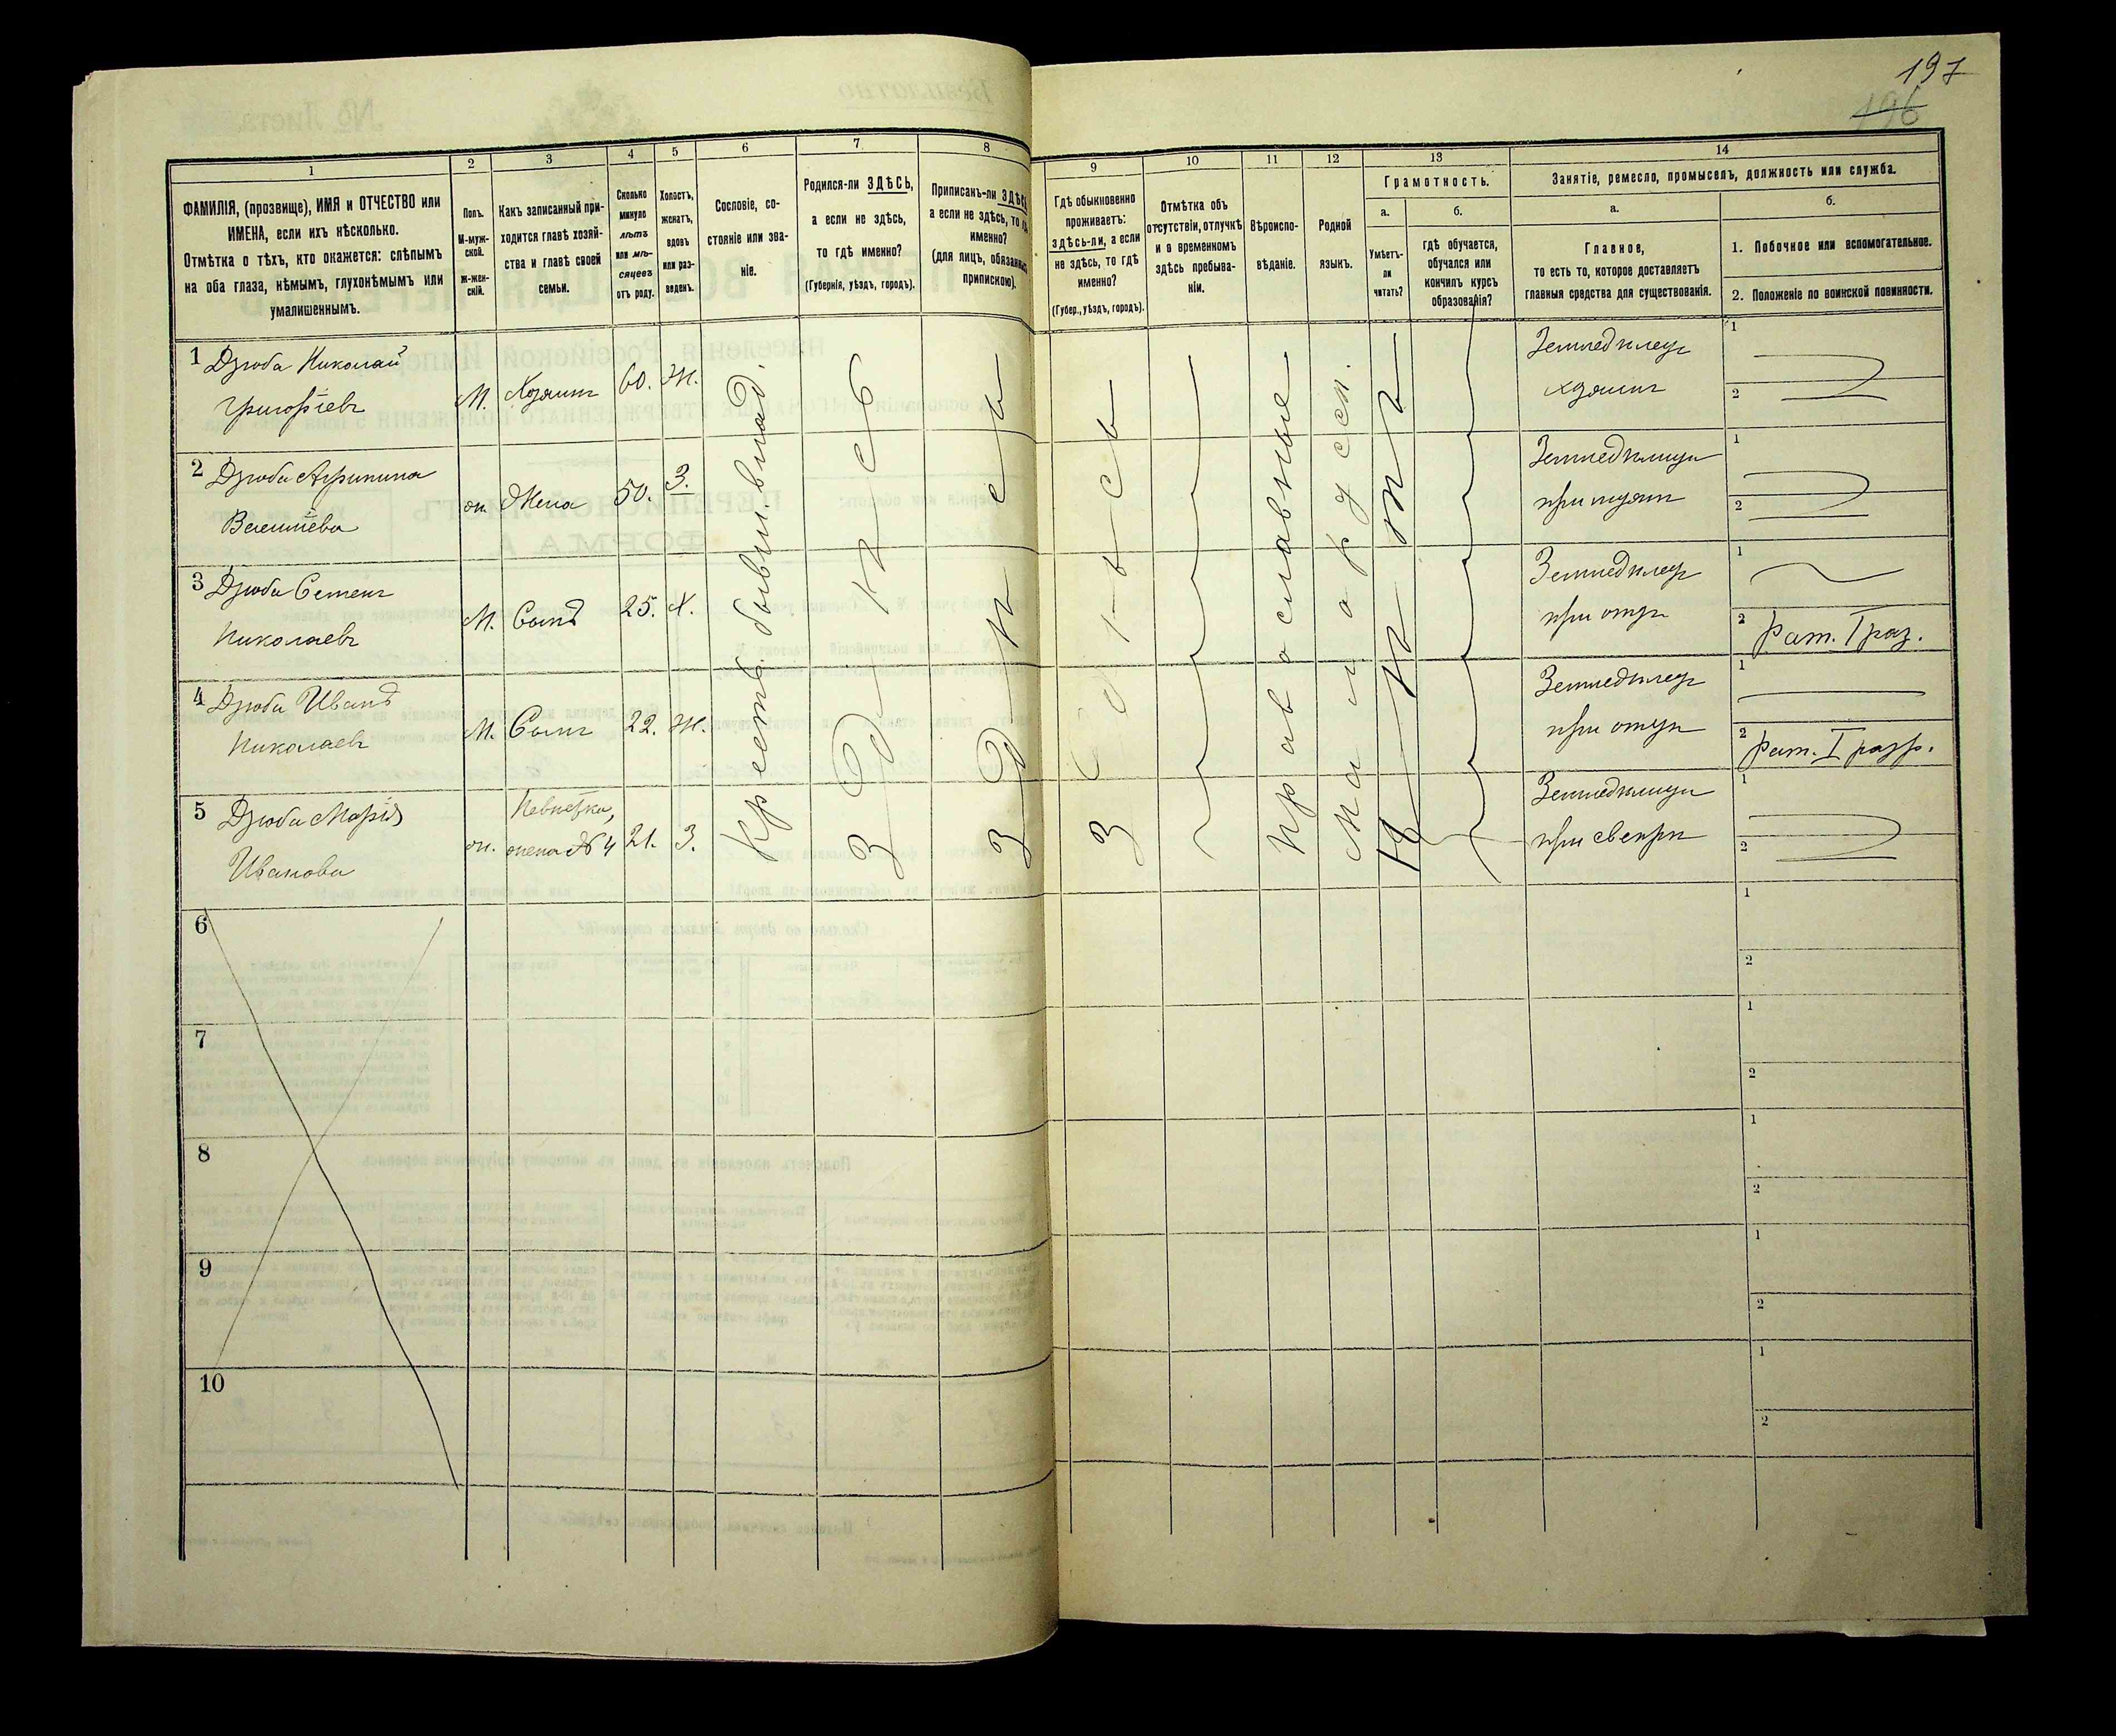 197
196
1
2
3
4
5
6
7
8
9
10
11
12
13
14
ФАМИЛІЯ, (прозвище), ИМЯ и ОТЧЕСТВО или
ИМЕНА, если ихъ нѣсколько.
Отмѣтка о тѣхъ, кто окажется: слѣпымъ
на оба глаза, нѣмымъ, глухонѣмымъ или
умалишеннымъ.
Полъ.
М-муж-
ской.
Ж-жен-
скій.
Какъ записанный при-
ходится главѣ хозяй-
ства и главѣ своей
семьи.
Сколько
минуло
лѣтъ
или мѣ-
сяцевъ
отъ роду.
Холостъ,
женатъ,
вдовъ
или раз-
веденъ.
Сословіе, со-
стояніе или зва-
ніе.
Родился-ли ЗДѢСЬ,
а если не здѣсь,
то гдѣ именно?
(Губернія, уѣздъ, городъ).
Приписанъ-ли ЗДѢСЬ,
а если не здѣсь, то гдѣ
именно?
(для лицъ, обязанныхъ
припискою).
Гдѣ обыкновенно
проживаетъ:
здѣсь-ли, а если
не здѣсь, то гдѣ
именно?
(Губер., уѣздъ, городъ).
Отмѣтка объ
отсутствіи, отлучкѣ
и о временномъ
здѣсь пребыва-
ніи.
Вѣроиспо-
вѣданіе.
Родной
языкъ.
Грамотность.
а.
Умѣетъ-
ли
читать?
б.
гдѣ обучается,
обучался или
кончилъ курсъ
образованія?
Занятіе, ремесло, промыселъ, должность или служба.
а.
Главное,
то есть то, которое доставляетъ
главныя средства для существованія.
б.
1. Побочное или вспомогательное.
2. Положеніе по воинской повинности.
1 Дзюба Николай
Григорьевъ
М. Хозяинъ 60. Ж.
Земледѣлецъ
хозяинъ
1
2
2 Дзюба
ж. Жена 50. З.
Земледѣлица
при мужѣ
1
2
3 Дзюба Семенъ
Николаевъ
М. Сынъ 25. Х.
Земледѣлецъ
при отцѣ
1
2 Рат. I раз.
4 Дзюба Иванъ
Николаевъ
М. Сынъ 22. Ж.
Земледѣлецъ
при отцѣ
1
2 Рат. I разр.
5 Дзюба Марія
Иванова
ж. Невѣстка,
жена № 4 21. З.
Земледѣлица
при свекрѣ
1
2
Крестьян. бывш. влад.
Здѣсь
Здѣсь
Здѣсь
Православные
Малорусск.
Нѣтъ
6
1
2
7
1
2
8
1
2
9
1
2
10
1
2